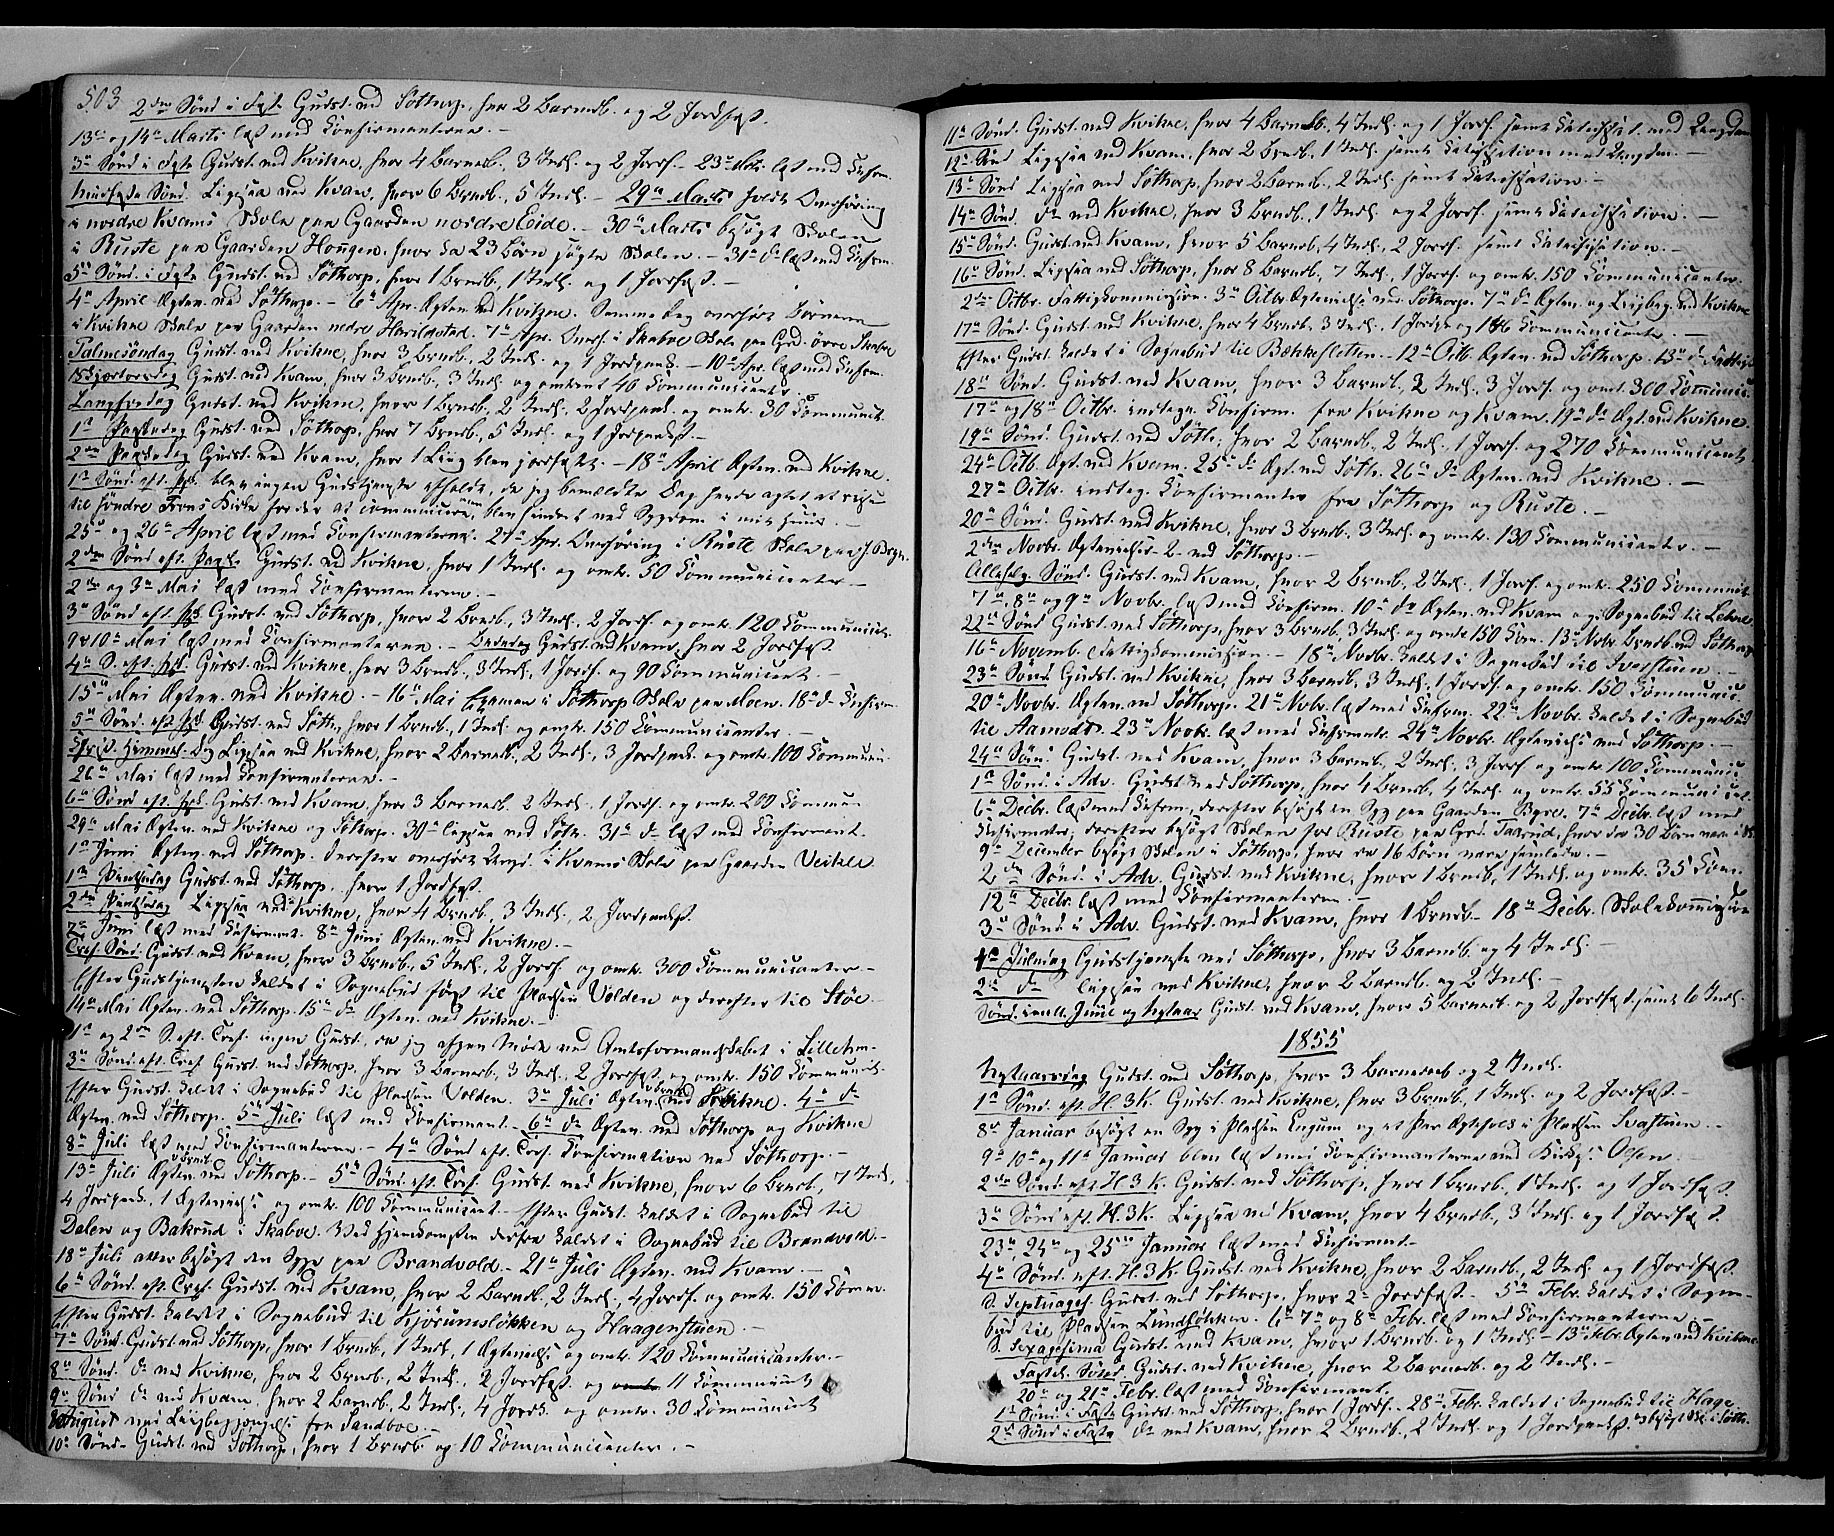 503 2den Sønd i Faste Gudst. ved Sødtorp, hvor 2 Barnedb. og 2 Jordfæst.
13de og 14de Marts læst med Confirmanterne. –
3de Sønd i Faste Gudst. ved Kvikne, hvor 4 Barnedb., 3 Indl. og 2 Jordf. – 23de læst med Cnfirm.
Midfaste Sønd. Ligesaa ved Kvam, hvor 6 Brndb., 5 Indl. – 29de Marts holdt Overhøring
i nordre Kvams Skole paa Gaarden nordre Eide. – 30te Marts besøgt Skolen
i Ruste paa Gaarden Hougen, hvor da 23 Børn søgte Skolen. – 31te læst med Cnfirm.
5te Sønd. i Faste Gudst. ved Sødtorp, hvor 1 Brndb., 1 Indl. og 1 Jordfæst. –
4de April Ægten. ved Sødtorp. – 6te Apr. Ægten. ved Kvikne. Samme Dag overhørt Børnene
i Kvikne Skole paa Gaarden nedre Harildstad. 7de Apr. Overh. i Skabue Skole paa Grd. øvre Skabue
Palmesøndag Gudst. ved Kvikne, hvor 3 Brndb., 2 Indl. og 1 Jordpaak. – 10de Apr. læst med Cnfirm.
Skjærtorsdag Gudst. ved Kvam, hvor 3 Brndb., 3 Indl. og omtrent 40 Communicanter. –
Langfredag Gudst. ved Kvikne, hvor 1 Brndb., 2 Indl. 2 Jordpaak. og omtr. 30 Communict.
1ste Paaskedag Gudst. ved Sødtorp, hvor 7 Brndb., 5 Indl. og 1 Jordpaakst. –
2den Paaskedag Gudst. ved Kvam, hvor 1 Liig blev jordfæstet. – 18de April Ægten. ved Kvikne.
1ste Sønd. eft. Psk. blev ingen Gudstjeneste afholdt, da jeg bemældte Dag havde agtet at reise
til søndre Frons Kirke for der at communicere, men blev hindret ved Sygdom i mit Huus. –
25de og 26de April læst med Confirmanterne. 27de Apr. Overhøring i Ruste Skole paa
2den Sønd. eft. Paaske Gudst. ved Kvikne, hvor 1 Indl. og omtr. 50 Communicanter –
2den og 3die Mai læst med Confirmanterne. –
3de Sønd eft. Psk. Gudst. ved Sødtorp, hvor 2 Brndb., 3 Indl., 2 Jordf. og omtr. 120 Communict.
9 & 10de Mai læst med Confirmanterne. – Bededag Gudst. ved Kvam, hvor 2 Jordfæst.
4de S. eft. Psk. Gudst. ved Kvikne, hvor 3 Brndb., 3 Indl., 1 Jordf. og 90 Communicant. –
15de Mai Ægten. ved Kvikne. – 16de Mai Examen i Sødtorp Skole paa Moen. 18de d. Cnfirm.
5te Sønd. eft. Psk. Gudst. ved Sødt., hvor 1 Brndb., 1 Indl. og omtr. 150 Communicanter. –
Christi Himmelf. Dag Ligesaa ved Kvikne, hvor 2 Barnedb., 2 Indl., 3 Jordpaak. og omtr. 100 Communi.
26de Mai læst med Confirmanterne. –
6te Sønd eft. Psk. Gudst. ved Kvam, hvor 3 Barnedb. 2 Indl. 1 Jordf. og omtr. 200 Commun.
29de Mai Ægten. ved Kvikne og Sødtorp. 30te ligesaa ved Sødt. 31te d. læst med Confirmant.
1ste Juni Ægten. ved Sødtorp. Derefter overhørt Ungd. i Kvams Skole paa Gaarden Veikle
1ste Pintsedag Gudst. ved Sødtorp, hvor 1 Jordfæst.
2den Pintsedag Ligesaa ved Kvikne, hvor 4 Brndb., 3 Indl., 2 Jordpaakst.
7de Juni læst med Cnfirmant. 8de Juni Ægten. ved Kvikne. –
Tref. Sønd. Gudst. ved Kvam, hvor 3 Brndb., 5 Indl., 2 Jordf. og omtr. 300 Communicanter –
Efter Gudstjenesten kaldet i Sognebud først til Pladsen Volden og derefter til Støe.
14de Mai Ægten. ved Sødtorp. 15de do Ægten. ved Kvikne. –
1ste og 2den S. eft. Tref. ingen Gudst., da jeg Møde ved Amtsformandskabet i Lilleham-
3de Sønd. eft. Tref. Gudst. ved Sødtorp, hvor 3 Barnedb., 3 Indl., 2 Jordfæst. og omtr. 150 Communict.
Efter Gudst. kaldet i Sognebud til Pladsen Volden. 3de Juli Ægten. ved Kvikne. 4de do
Ægten. ved Sødtorp. 5te Juli læst med Confirmant. – 6te do Ægten. ved Sødtorp og Kvikne
8de Juli læst med Confirmanterne. – 4de Sønd eft. Tref. Confirmation ved Sødtorp. –
13de Juli Ægten. ved Sødtorp. – 5te Sønd. eft. Tref. Gudst. ved Kvikne, hvor 6 Brndb., 7 Indl.,
4 Jordpaak., 1 Ægtevielse og omtr. 100 Communicant. – Efter Gudst. kaldet i Sognebud til
Dalen og Bakrud i Skabue. Ved Hjemkomsten derfra kaldet i Sognebud til Brandvold. –
18de Juli atter besøgt den Syge paa Brandvold. – 21de Juli Ægten. ved Kvam. –
6te Sønd. eft. Tref. Gudst. ved Kvam, hvor 2 Barnedb., 2 Indl., 4 Jordf. og omtr. 150 Commun.
Efter Gudst. kaldet i Sognebud til Kjørumsløkken og Haagenstuen. –
7de Sønd. Gudst. ved Sødtorp, hvor 1 Brndb., 1 Indl., 1 Ægtevielse og omtr. 120 Communicanter. –
8de Sønd. do ved Kvikne, hvor 2 Brndb., 2 Indl., 2 Jordfæst. og omtr. 11 Communicant
9de Sønd do ved Kvam, hvor 2 Barnedb., 2 Indl., 4 Jordf. og omtr. 30 Communicant
August ved Liigbegjængelse fra Sandboe –
10de Sønd – Gudst. ved Sødtorp, hvor 1 Brndb og 10 Communicanter. –
11te Sønd. Gudst. ved Kvikne, hvor 4 Barnedb., 4 Indl. og 1 Jordf. samt Catechisat. med Ungdom
12te Sønd Ligesaa ved Kvam, hvor 2 Brndb., 1 Indl. samt Catechisation med Ungdm. –
13de Sønd Ligesaa ved Sødtorp, hvor 2 Barnedb., 2 Indl. samt Catechisation. –
14de Sønd. do ved Kvikne, hvor 3 Brndb., 1 Indl. og 2 Jordf. samt Catechisation. –
15de Sønd. Gudst. ved Kvam, hvor 5 Barnedb., 4 Indl., 2 Jordf. samt Catechisation. –
16de Sønd. Ligesaa ved Sødtorp, hvor 8 Barnedb., 7 Indl., 1 Jordf. og omtr. 150 Communicanter.
2den Octbr. Fattigkommission. 3de Octbr. Ægtevielse ved Sødtorp. 7de do Ægten. og Liigbeg. ved Kvikne
17de Sønd. Gudst. ved Kvikne, hvor 4 Brndb., 3 Indl., 1 Jordf. og 146 Communicanter. –
Efter Gudst. kaldet i Sognebud til Bækkesletten. – 12te Octb. Ægten. ved Sødtorp. 13de do Fattigk.
18de Sønd. Gudst. ved Kvam, hvor 3 Barnedb., 2 Indl., 3 Jordf. og omtr. 300 Communic.
17de og 18de Octbr. indtegn. Confirm. fra Kvikne og Kvam. 19de do Ægt. ved Kvikne.
19de Sønd. Gudst. ved Sødt., hvor 2 Barnedb., 2 Indl., 1 Jordf. og 270 Communicant.
24de Octb. Ægt. ved Kvam. 25de do Ægt. ved Sødth. 26de do Ægten. ved Kvikne. –
27de Octbr. indteg. Confirmanter fra Sødtorp og Ruste. –
20de Sønd. Gudst. ved Kvikne, hvor 3 Brndb., 3 Indl. og omtr. 130 Communicanter. –
2den Novbr. Ægtevielse 2 ved Sødtorp. –
Allehelg. Sønd. Gudst. ved Kvam, hvor 2 Brndb., 2 Indl., 1 Jordf. og omtr. 250 Communict.
7de, 8de og 9de Novbr. læst med Confirm. 10de do Ægten. ved Kvam og i Sognebud til Lehne
22de Sønd Gudst. ved Sødtorp, hvor 3 Brndb., 3 Indl. og omtr. 150 Com. – 13de Novbr. Brndb. ved Sødtorp
16de Novemb. Fattigkommission. – 18de Novbr. kaldet i Sognebud til Iverstuen. –
23de Sønd. Gudst. ved Kvikne, hvor 3 Barnedb., 3 Indl., 1 Jordf. og omtr. 150 Communic.
20de Novbr. Ægten. ved Sødtorp. 21de Nvbr. læst med Cnfirm. 22de Novbr. kaldet i Sognebud
til Aamodt. 23de Novbr. læst med Cnfirmntr. 24de Novbr. Ægtevielse ved Sødtorp. –
24de Sønd. Gudst. ved Kvam, hvor 3 Barnedb., 2 Indl., 3 Jordf. og omtr. 100 Communic.
1ste Sønd. i Adv. Gudst ved Sødtorp, hvor 4 Brndb., 4 Indl. og omtr. 55 Communicat.
6te Decbr. læst med Cnfirm., derefter besøgt en Syg paa Gaarden Byre. 7de Decbr. læst med
Cnfirmanter, derefter besøgt Skolen for Ruste paa Grd. Taarud, hvor da 30 Børn vare saml.
9de December besøgt Skolen i Sødtorp, hvor da 16 Børn vare samlede. –
2den Sønd. i Adv. Gudst. ved Kvikne, hvor 1 Brndb., 1 Indl. og omtr. 35 Com.
12te Decbr. læst med Confirmanterne. –
3de Sønd i Adv. Gudst. ved Kvam, hvor 1 Brndb. – 18de Decbr. Skolekommission
1ste Juledag Gudstjeneste ved Sødtorp, hvor 3 Barnedb. og 4 Indl. –
2den do ligesaa ved Kvikne, hvor 2 Barnedb. og 2 Indl. –
Sønd. imell. Juul og Nytaar Gudst. ved Kvam, hvor 5 Barnedb. og 2 Jordfæst. samt 6 Indl.
1855
Nytaarsdag Gudst. ved Sødtorp, hvor 3 Barnedaab og 2 Indl.
1ste Sønd. eft. H. 3 K. Gudst. ved Kvikne, hvor 3 Brndb., 1 Indl. og 2 Jordfæst. –
8de Januar besøgt en Syg i Pladsen Engum og et Par Ægtefolk i Pladsen Svastuen. –
9de 10de og 11te Januar blev læst med Confirmanterne ved Kirkes. Olsen. –
2den Sønd. eft. H. 3 K. Gudst. ved Sødtorp, hvor 1 Brndb., 1 Indl. og 1 Jordfæst.
3de Sønd eft. H. 3 K. Ligesaa ved Kvam, hvor 4 Brndb., 3 Indl. og 1 Jordfæst.
23de 24de og 25de Januar læst med Cnfirmant. –
4de Sønd. eft. H. 3 K. Gudst. ved Kvikne, hvor 2 Barnedb., 2 Indl. og 1 Jordfæst.
S. Septuages. Gudst. ved Sødtorp, hvor 2 Jordfæst. – 5te Febr. kaldet i Sogne-
bud til Pladsen Lundsløkken. 6te 7de og 8de Febr. læst med Confirmanterne –
S. Sexagesima Gudst. ved Kvam, hvor 1 Brndb. og 1 Indl. – 13de Febr. Ægten. ved Kvikne
Fastel. Sønd Gudst. ved Kvikne, hvor 2 Barnedb. og 2 Indl. –
20de og 21de Febr. læst med Confirmant.
1ste Sønd. i Faste Gudst. ved Sødtorp, hvor 1 Jordf. – 28de Febr. kaldet i Sognebud til Hage
2den Sønd i Faste do ved Kvam, hvor 2 Brndb., 2 Indl. og 1 Jordpaakst. besøgt Skl. i Sødth.